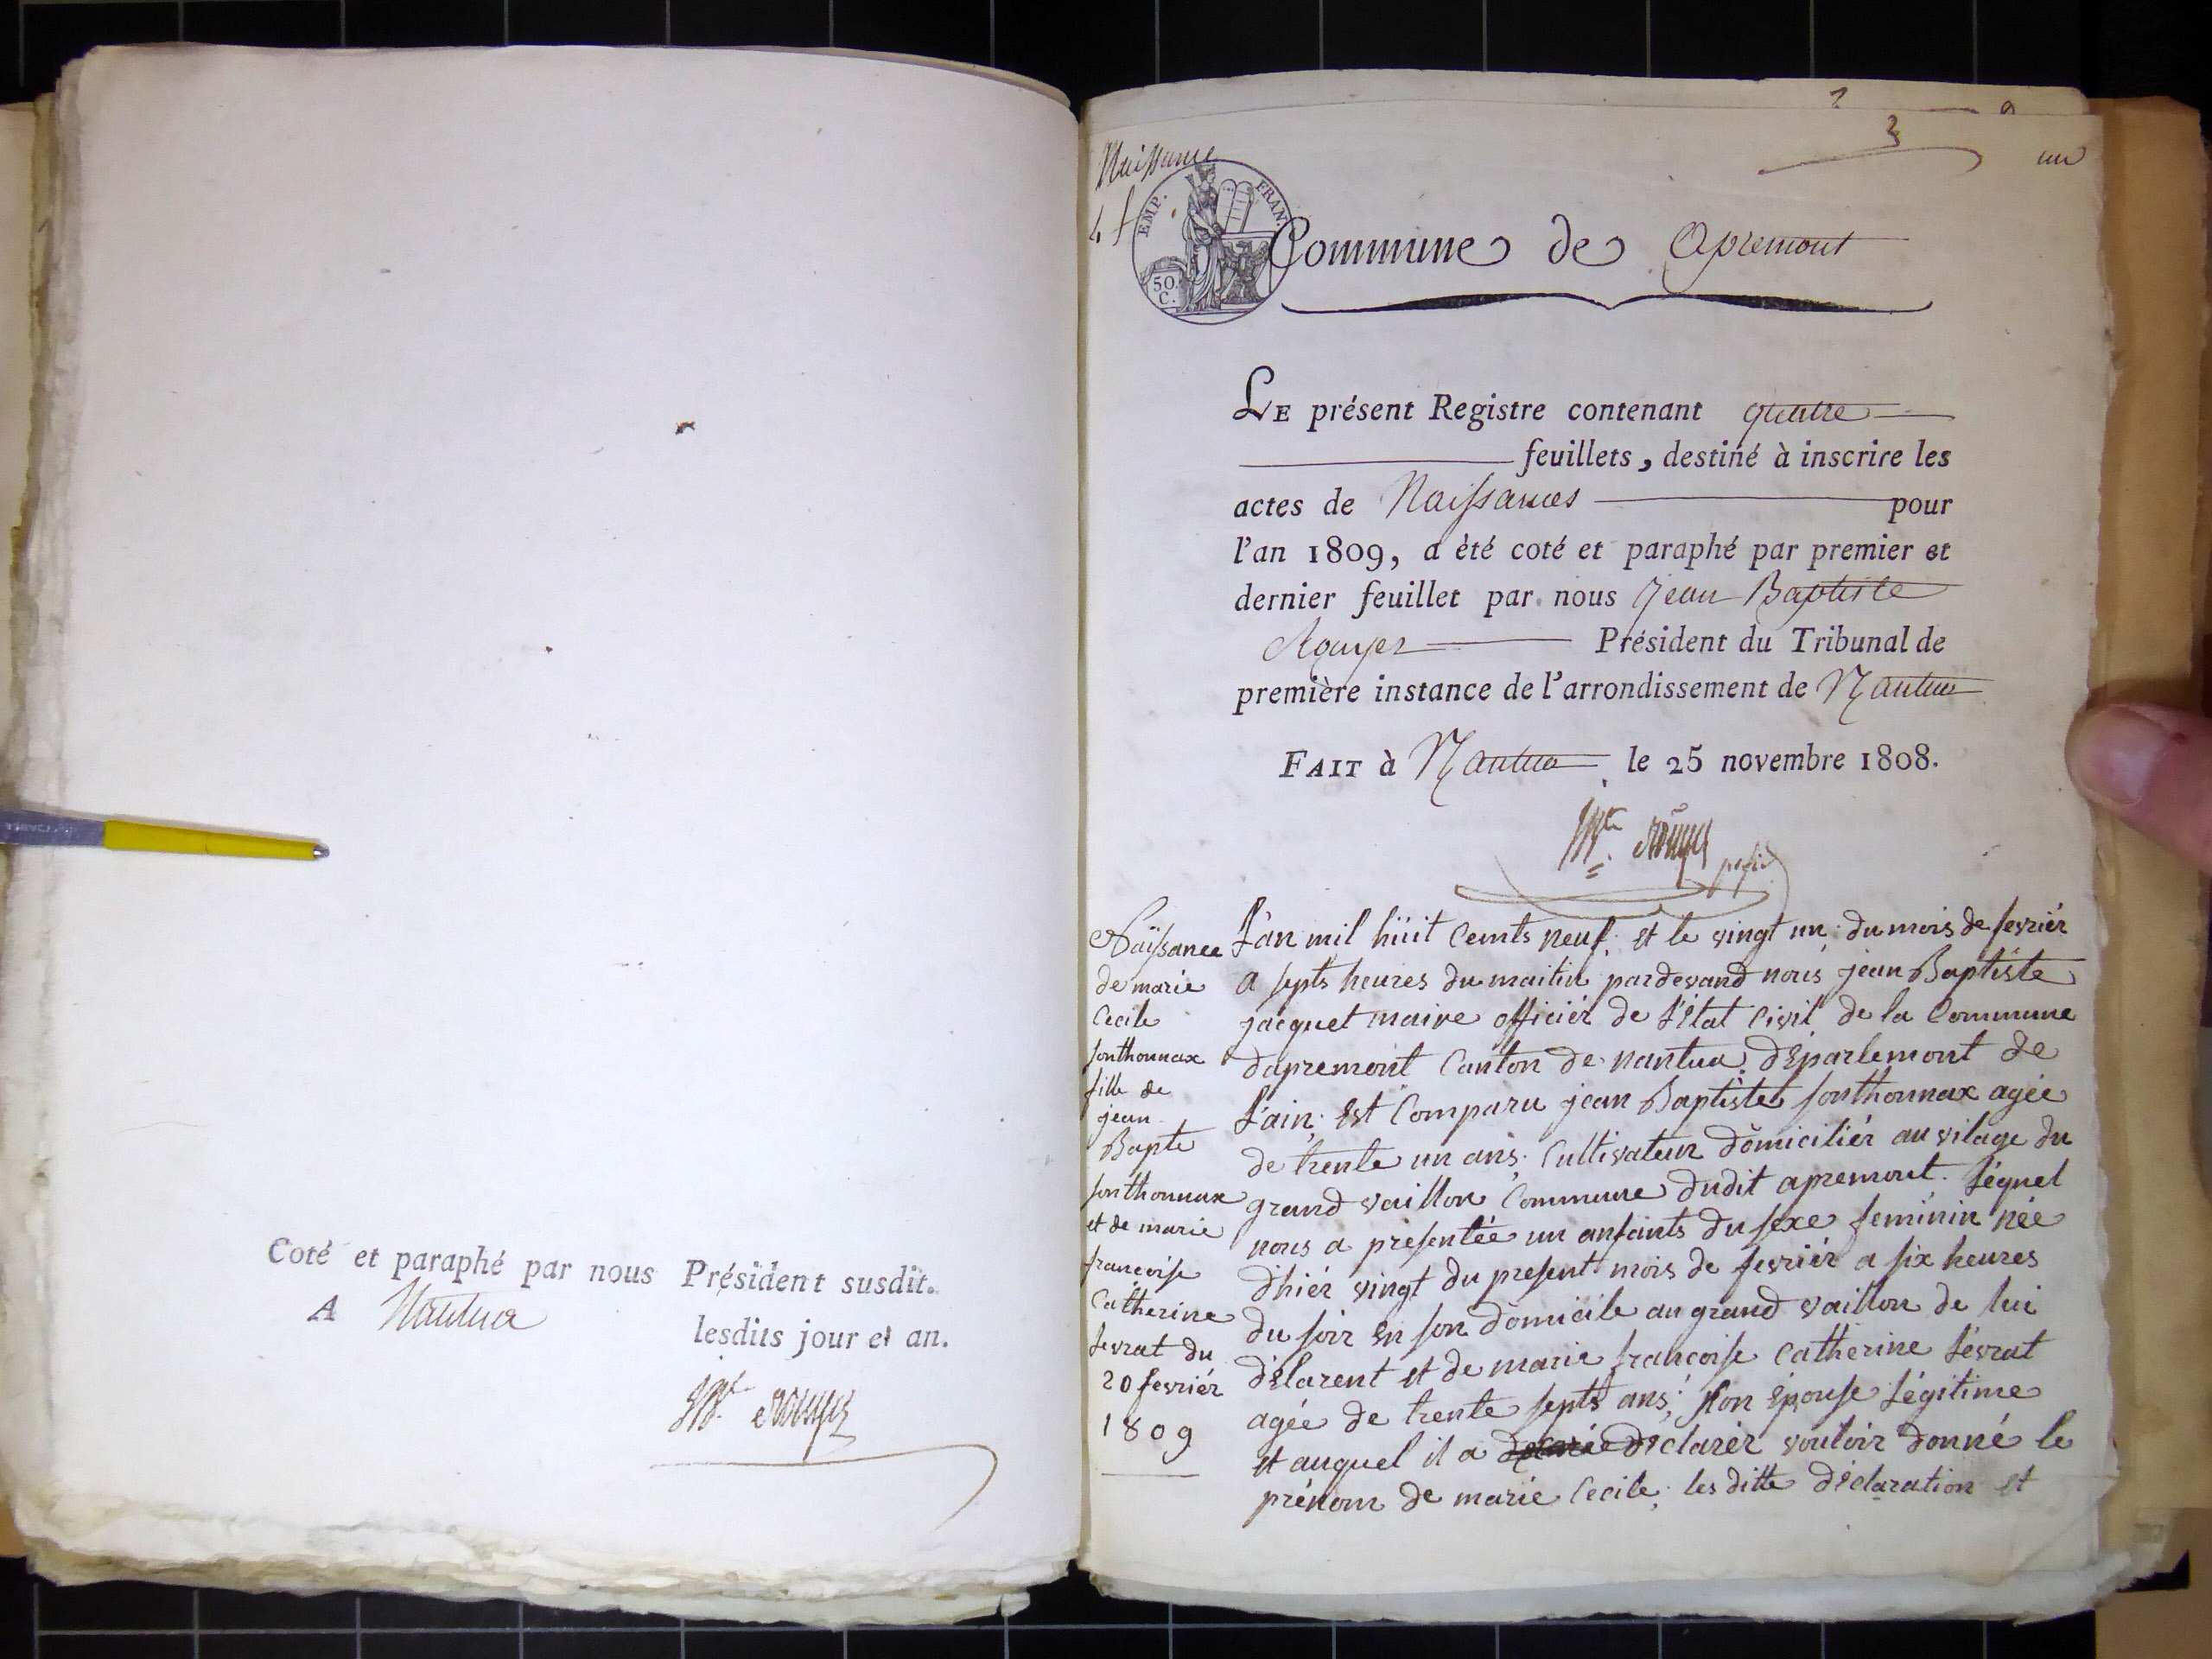 Coté et paraphé par nous Président susdit.
A Nantua
lesdits jour et an.
JBte Rouyer
Naissance
4 f
EMP. FRAN.
50.
C.
3
un
Commune de Apremont
LE présent Registre contenant quatre
feuillets, destiné à inscrire les
actes de Naissances pour
l'an 1809, a été coté et paraphé par premier et
dernier feuillet par nous Jean Baptiste
Rouyer Président du Tribunal de
première instance de l'arrondissement de Nantua
FAIT à Nantua le 25 novembre 1808.
JBte Rouyer
Naissance
de marie
Cecile
sonthonnax
fille de
jean
Bapte
sonthonnax
et de marie
francoise
Catherine
levrat du
20 fevriér
1809
L'an mil hüit Cents neuf et le vingt un du mois de fevriér
a septs heures du maitin pardevand nous jean Baptiste
jacquet maire officiér de l'état Civil de la Commune
dapremont Canton de nantua départemont de
L'ain. Est Comparu jean Baptiste sonthonnax agée
de trente un ans; Cultivateur domiciliér au vilage du
grand vaillon Commune dudit apremont. Léquel
nous a présentée un anfants du sexe feminin née
d'hiér vingt du present mois de fevriér a six heures
du soir en son domicile au grand vaillon de lui
délarent et de marie francoise Catherine lévrat
agée de trente septs ans; son épouse Légitime
et auquel il a déclarér vouloir donné le
prénom de marie Cecile; les ditte déclaration et